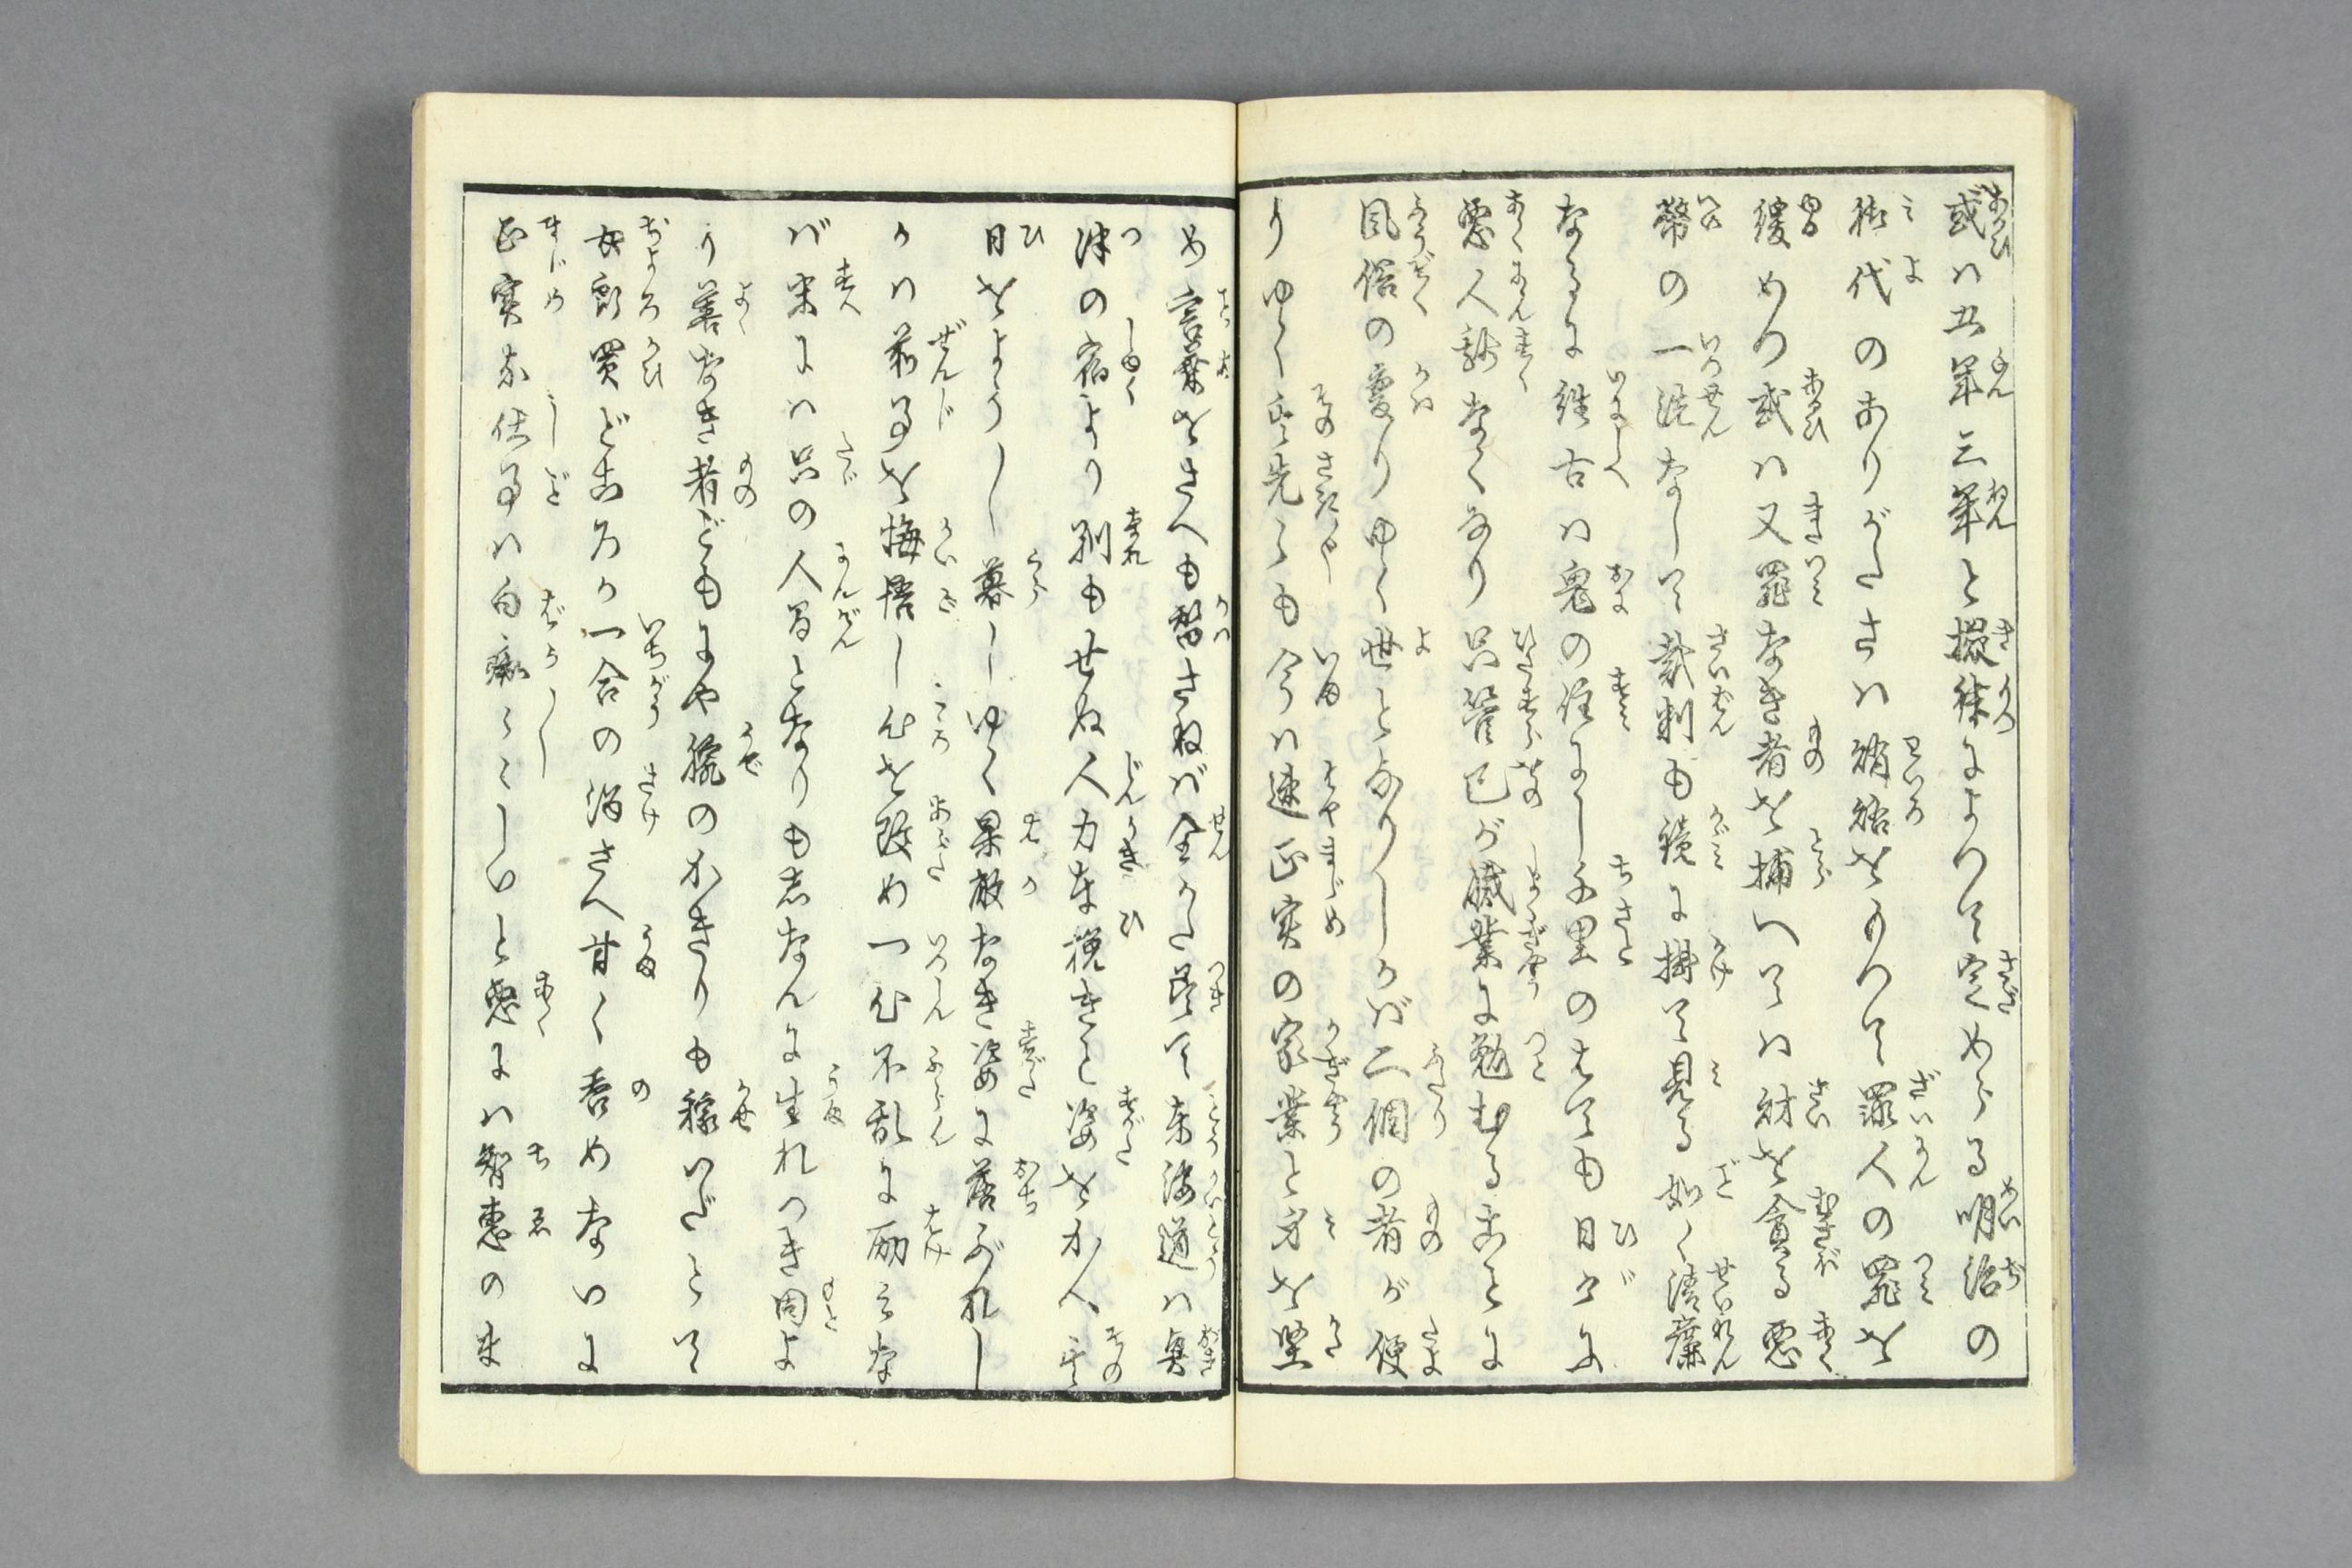 或ハ五年三年と掟律によつて定めらる明治の
御代のありがたさハ賄賂をもつて罪人の罪を
緩めつ或ハ又罪なき者を捕へてハ財を貪る悪
幣の一洗なして裁判も鏡に掛て見る如く清廉
なるに往古ハ鬼の住にし千里のはても日々に
悪人跡なくなり只管己が職業に勉むることに
風俗の変りゆく世となりしかバ二個の者が便
りゆく其先々も今ハ速正実の家業と身を堅
め言葉をさへも替さねバ全かた尽て東海道ハ興
津の宿より別もせぬ人力車挽きと姿をかへ其
日をようし暮しゆく果敢なき姿に落ぶれし
かハ前事を悔悟し心を改め一心不乱に励みな
バ末にハ只の人間となりも志なんに生れつき固よ
り善なき者どもにや稼のかぎりも稼いだとて
女郎買どころか一合の酒さへ甘く呑めないに
正実な仕事ハ白痴々々しいと悪にハ智恵のま